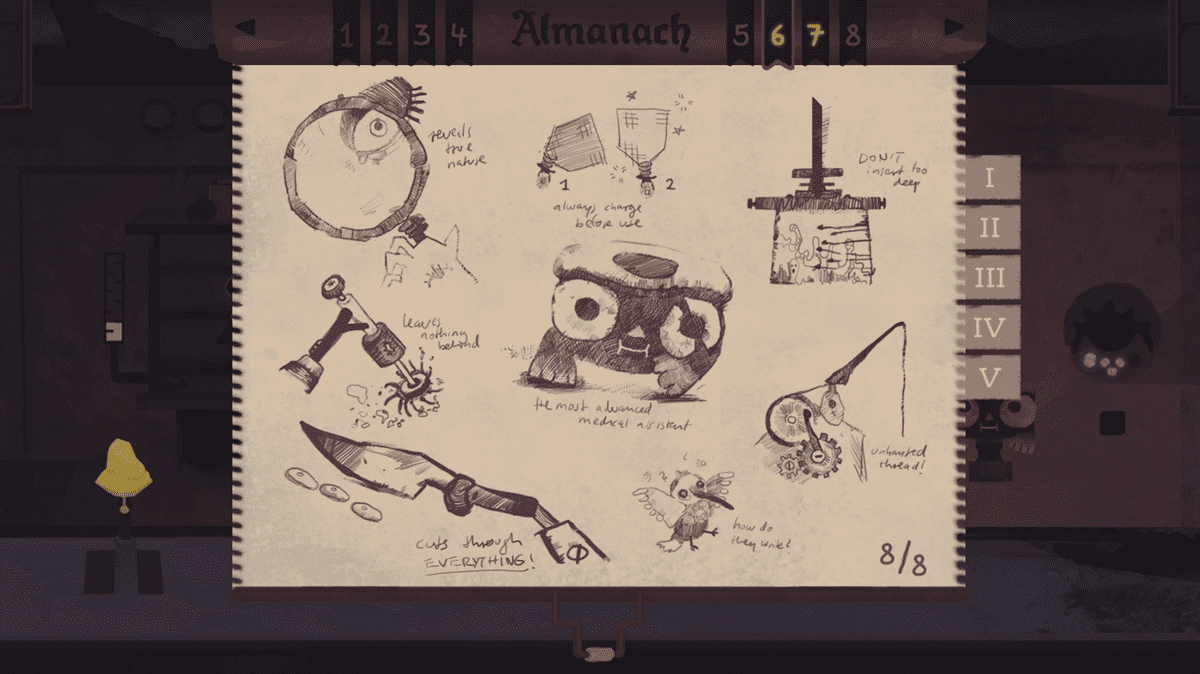 1 2 3 4 Almanach 5 6 7 8
reveals
true
nature
1 2
always charge
before use
DON'T
insert too
deep
I
II
III
IV
V
leaves
nothing
behind
the most advanced
medical assistant
unlimited
thread!
cuts through
EVERYTHING!
how do
they work?
8/8